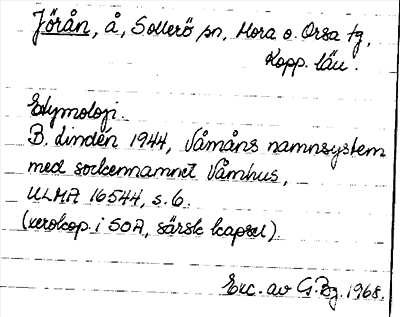 Jörån, å, Sollerö sn, Mora o. Orsa tg,
Kopp. län.
Etymologi.
B. Lindén 1944, Våmåns namnsystem
med sockennamnet Våmhus,
ULMA 16544, s. 6.
(xerokop. i SOA, särsk kapsel)
Exc. av G. Bg. 1968.